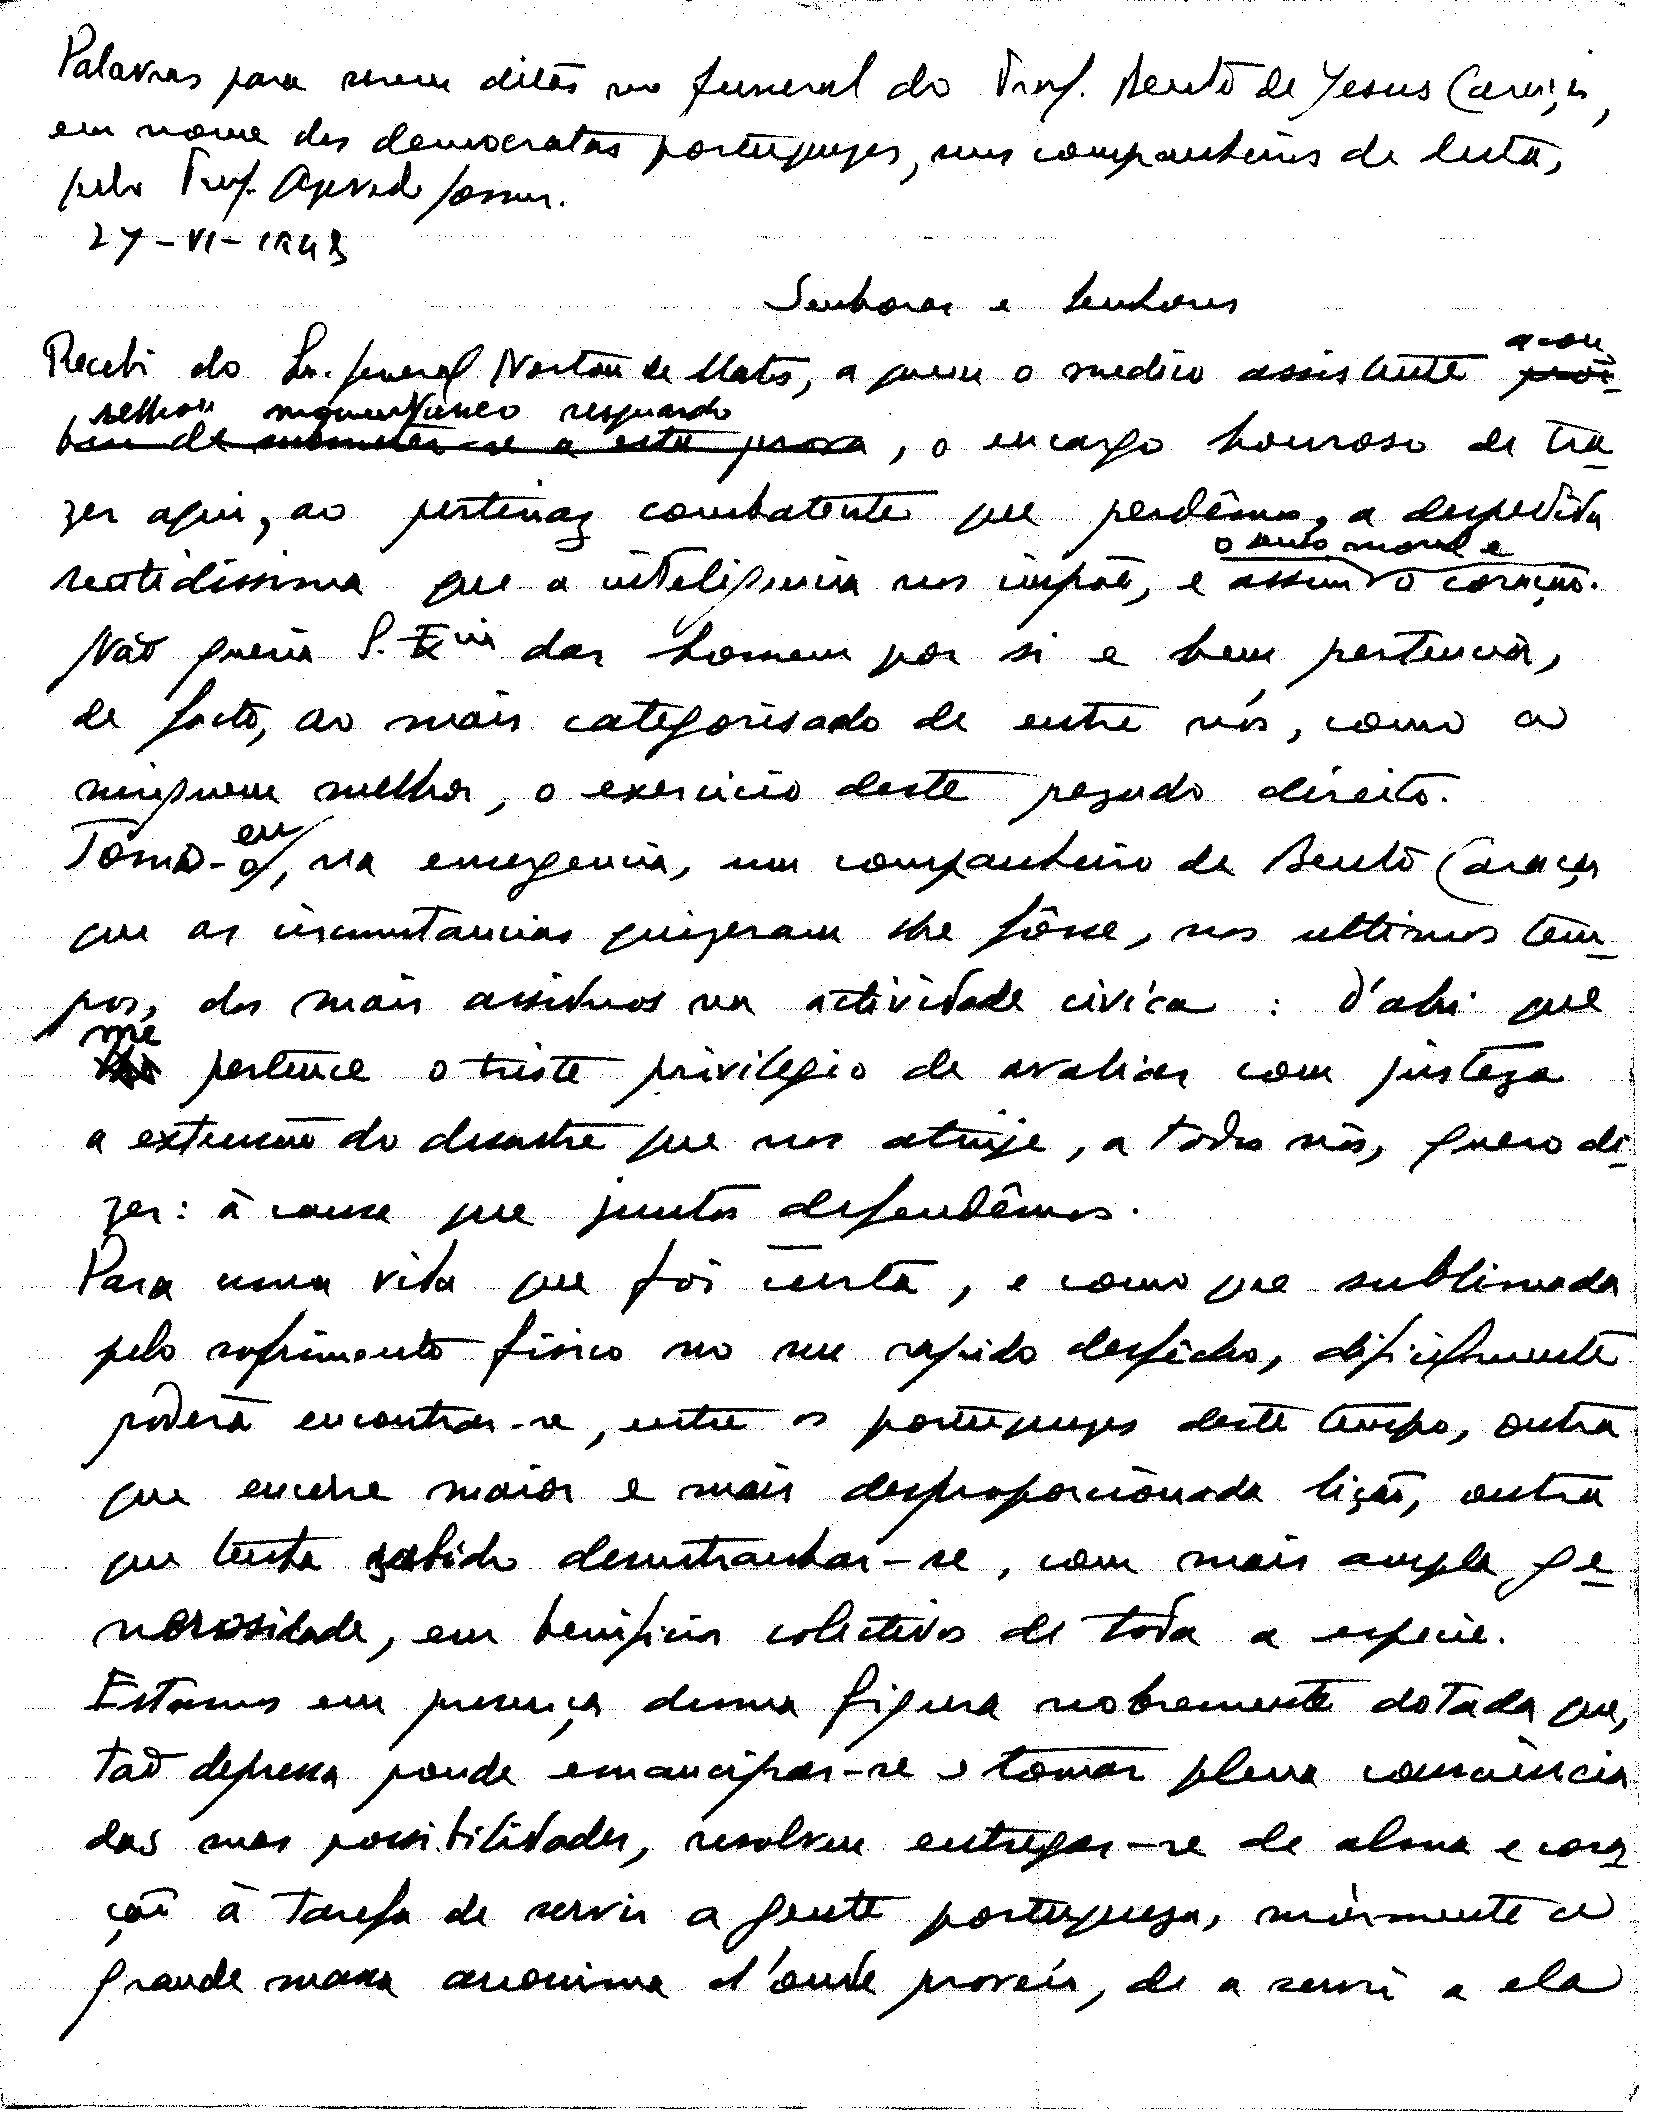 Palavras para serem ditas no funeral do Prof. Bento de Jesus Caraça,
em nome dos democratas portuguezes, seus companheiros de luta,
pelo Prof. Azevedo Gomes.
27-VI-1948
Senhoras e Senhores
Recebi do Sr. General Norton de Matos, a quem o medico assistente acon
selhou momentaneo resguardo, o encargo honroso de tra
zer aqui, ao pertinaz combatente que perdêmos, a despedida
sentidissima que a inteligencia nos impõe, e assim o senso moral e o coração.
Não queria S. Exia dar homem por si e bem pertencia,
de facto, ao mais categorisado de entre nós, como a
ninguem melhor, o exercicio deste pezado direito.
Tomo-eu, na emergencia, um companheiro de Bento Caraça
que as circunstancias quizeram lhe fôsse, nos ultimos tem-
pos, dos mais assiduos na actividade civica: d'ahi que
me pertence o triste privilegio de avaliar com justeza
a extensão do desastre que nos atinje, a todos nós, quero di-
zer: à causa que juntos defendêmos.
Para uma vida que foi curta, e como que sublimada
pelo sofrimento fisico no seu rapido desfêcho, dificilmente
poderá encontrar-se, entre os portuguezes deste tempo, outra
que encerre maior e mais desproporcionada lição, outra
que tenha sabido desentranhar-se, com mais ampla ge-
nerosidade, em beneficios colectivos de toda a especie.
Estamos em presença duma figura nobremente dotada que,
tão depressa poude emancipar-se e tomar plena consciencia
das suas possibilidades, resolveu entregar-se de alma e cora
ção à tarefa de servir a gente portugueza, mórmente a
grande massa anonima d'onde proveiu, de a servir a ela